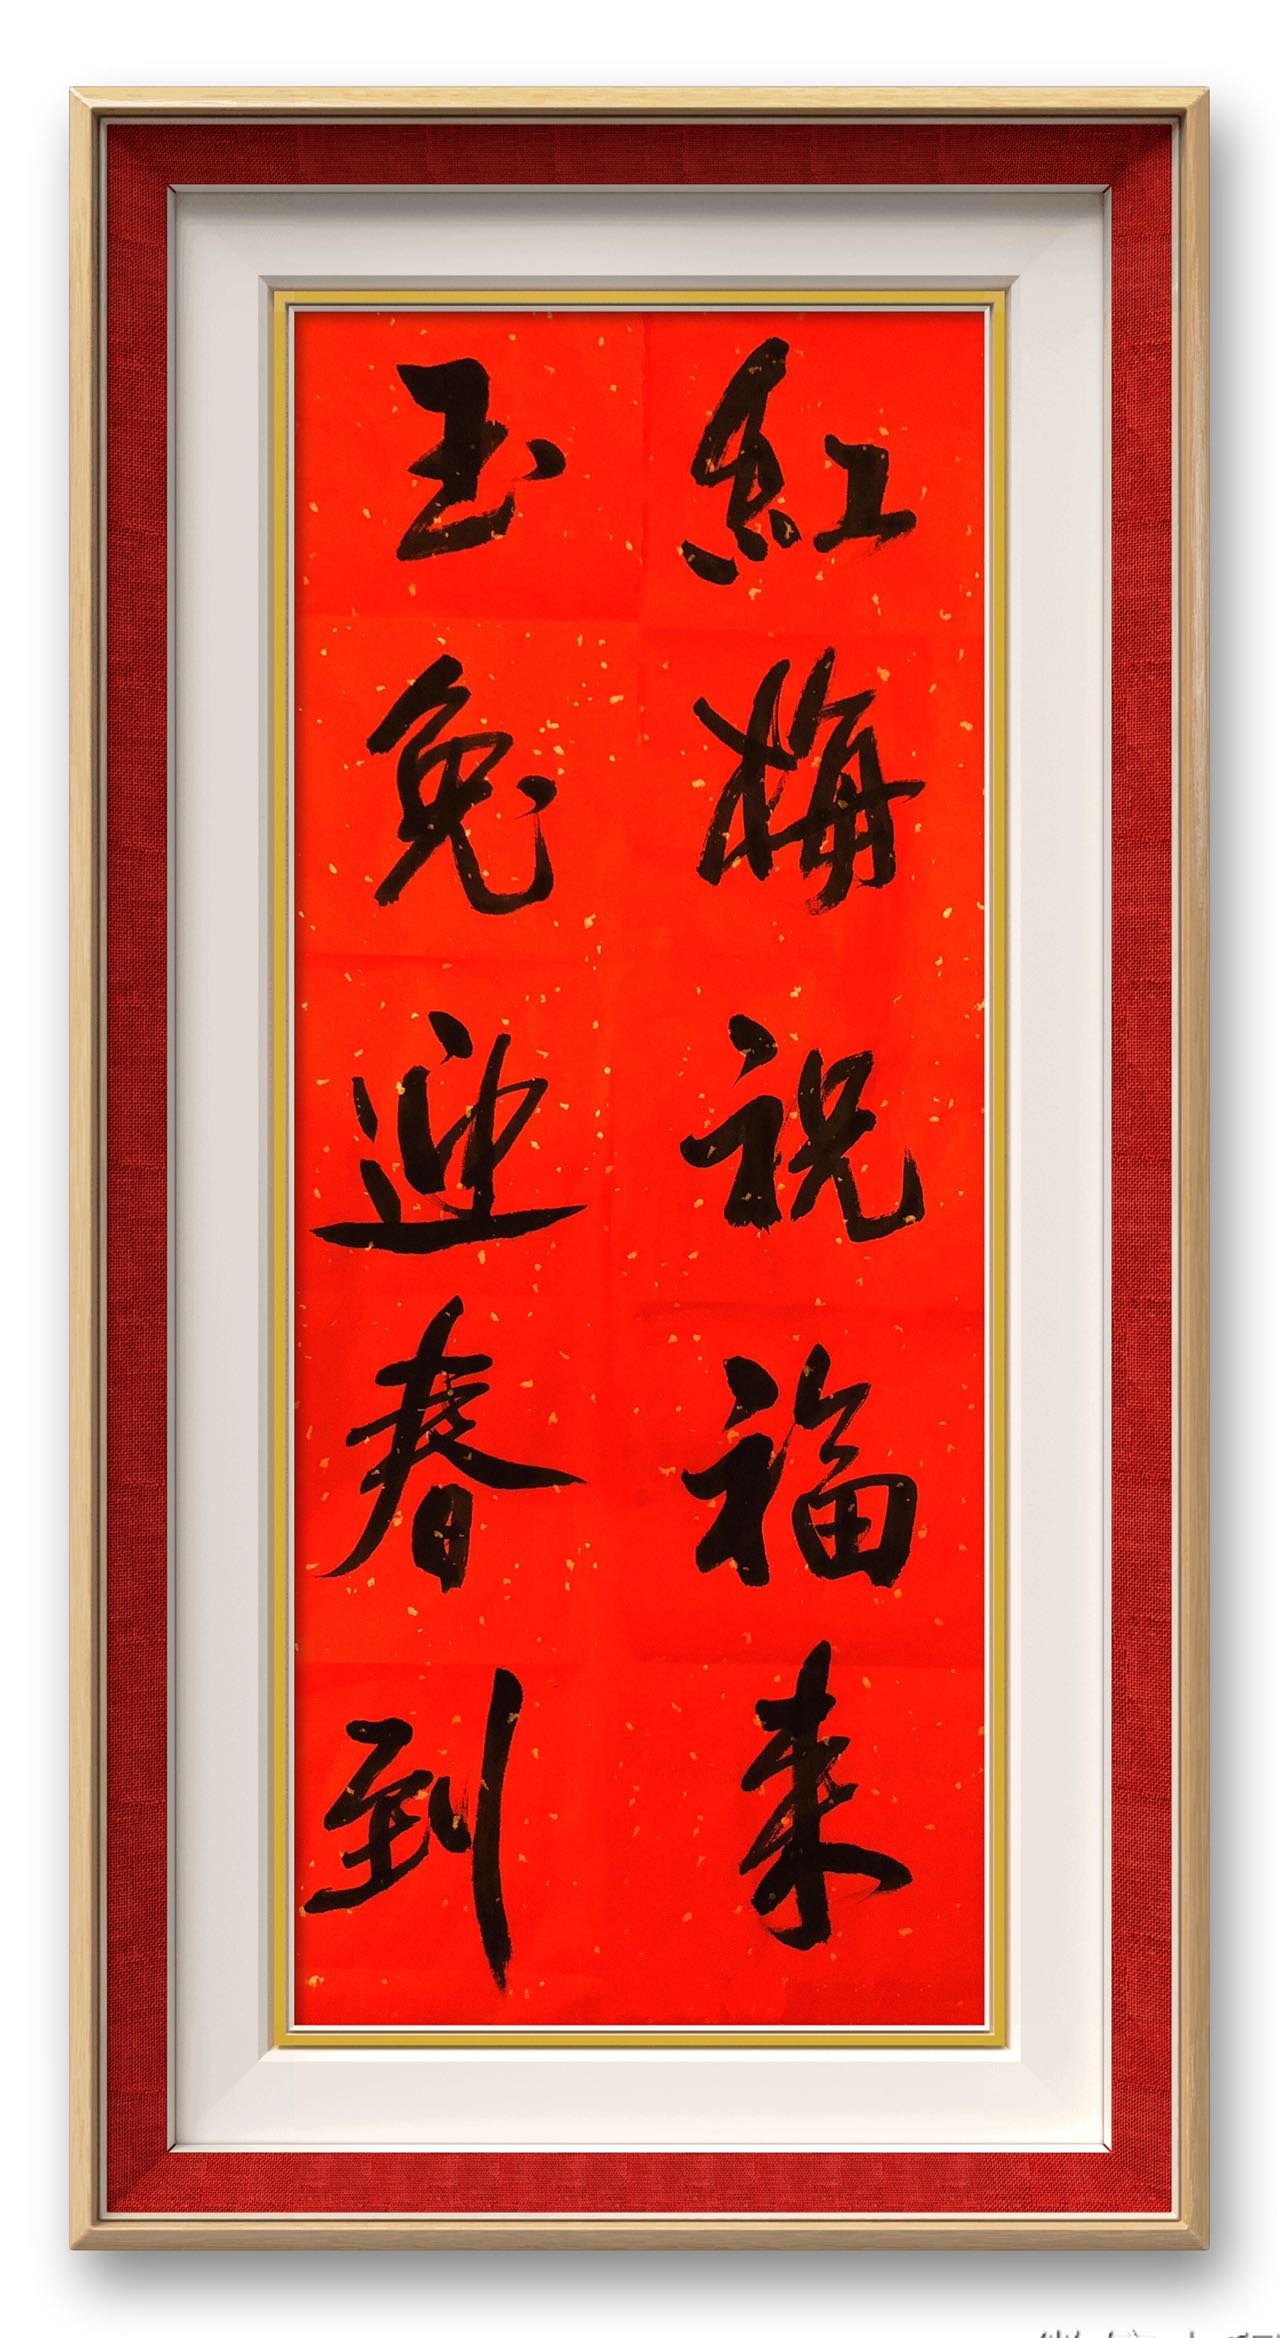 紅梅祝福来
玉兔迎春到